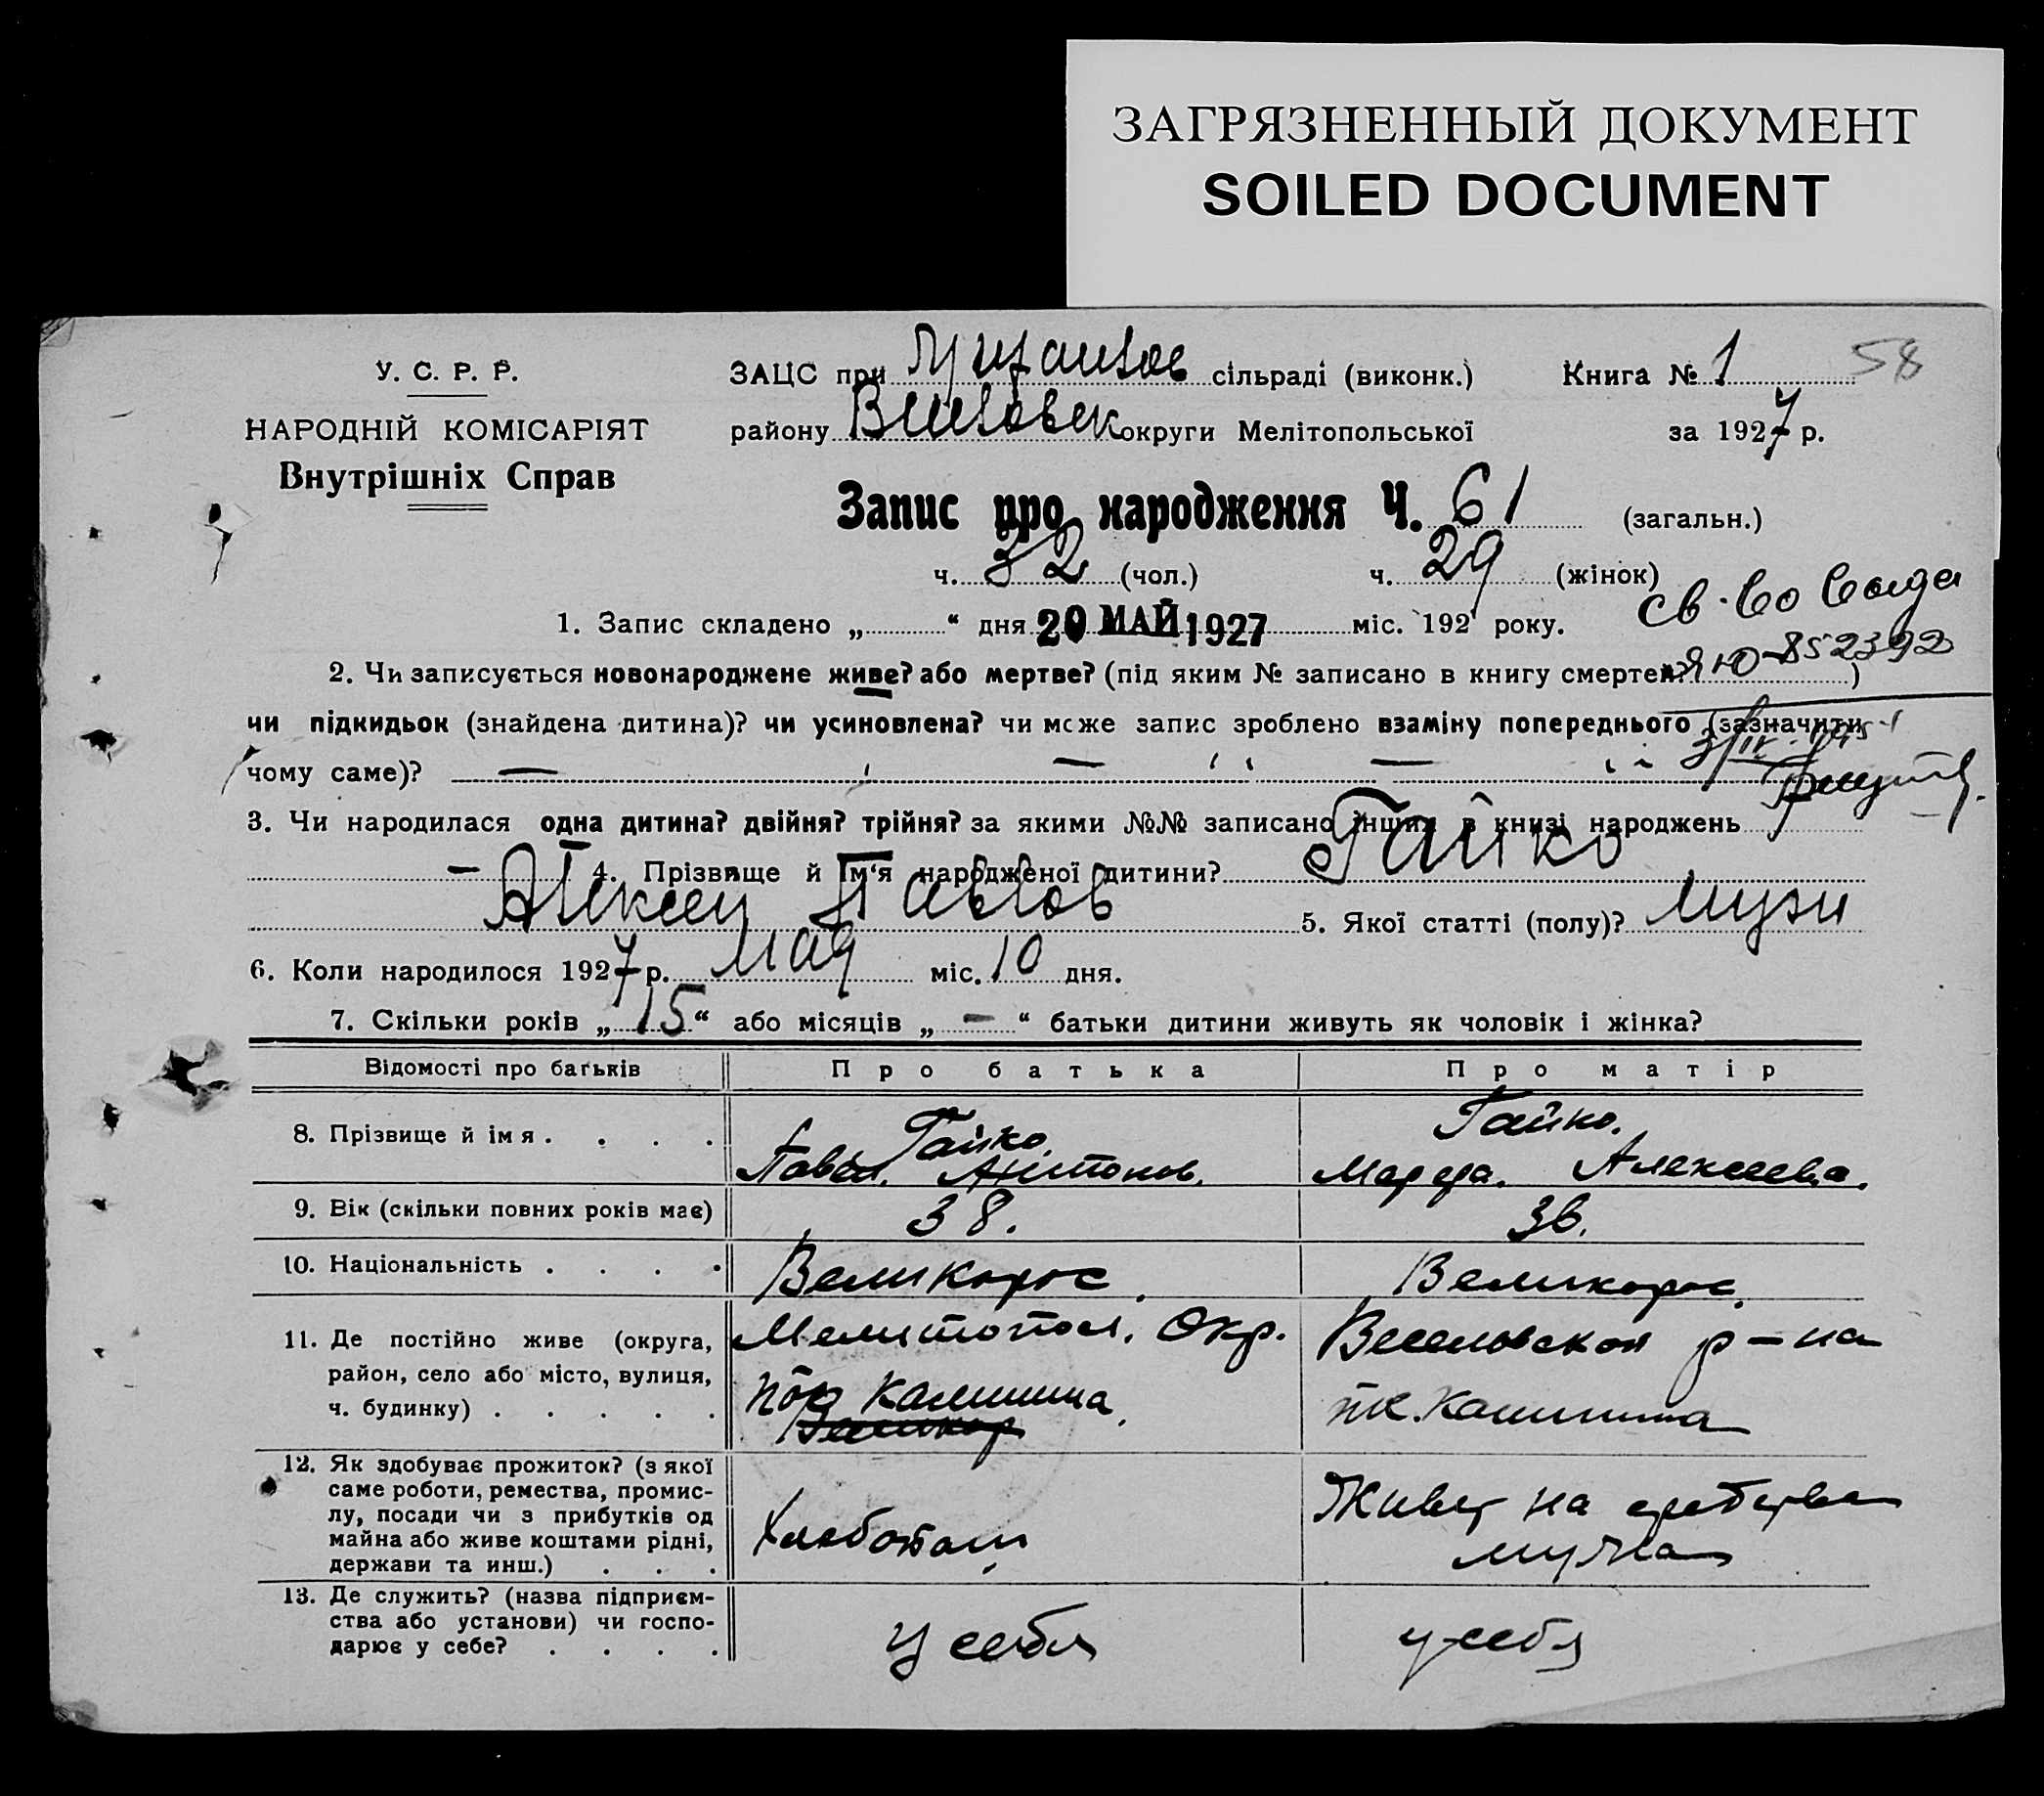 ЗАГРЯЗНЕННЫЙ ДОКУМЕНТ
SOILED DOCUMENT
У. С. Р. Р.
НАРОДНІЙ КОМІСАРІЯТ
Внутрішніх Справ
ЗАЦС при сільраді (виконк.)
Книга № 1 58
району округи Мелітопольської
за 1927 р.
Запис про народження Ч. 61 (загальн.)
ч. 32 (чол.) ч. 29 (жінок)
1. Запис складено „ “ дня 20 МАЙ 1927 міс. 192 року.
2. Чи записується новонароджене живе? або мертве? (під яким № записано в книгу смертей? )
852392
чи підкидьок (знайдена дитина)? чи усиновлена? чи може запис зроблено взаміну попереднього (зазначити
чому саме)?
3. Чи народилася одна дитина? двійня? трійня? за якими №№ записано інших в книзі народжень
— 4. Прізвище й ім‘я народженої дитини? Гайко
Алексей Павлов 5. Якої статті (полу)? мужи
6. Коли народилося 1927 р. мая міс. 10 дня.
7. Скільки років „ 15 “ або місяців „ — “ батьки дитини живуть як чоловік і жінка?
Відомості про батьків Про батька Про матір
8. Прізвище й імя . . . . Гайко Павел. Антонов. Гайко. Алексеева.
9. Вік (скільки повних років має) 38. 36.
10. Національність . . . . Великорос. Великорос.
11. Де постійно живе (округа, Мелитопол. Окр. Веселовской р-на
район, село або місто, вулиця, Калинина пк. Калинина
ч. будинку) . . . . .
12. Як здобуває прожиток? (з якої
саме роботи, ремества, промис-
лу, посади чи з прибутків од Живет на средства
майна або живе коштами рідні, Хлебопаш мужа
держави та инш.) . . .
13. Де служить? (назва підприєм-
ства або установи) чи госпо- у себя у себя
дарює у себе? . . . .